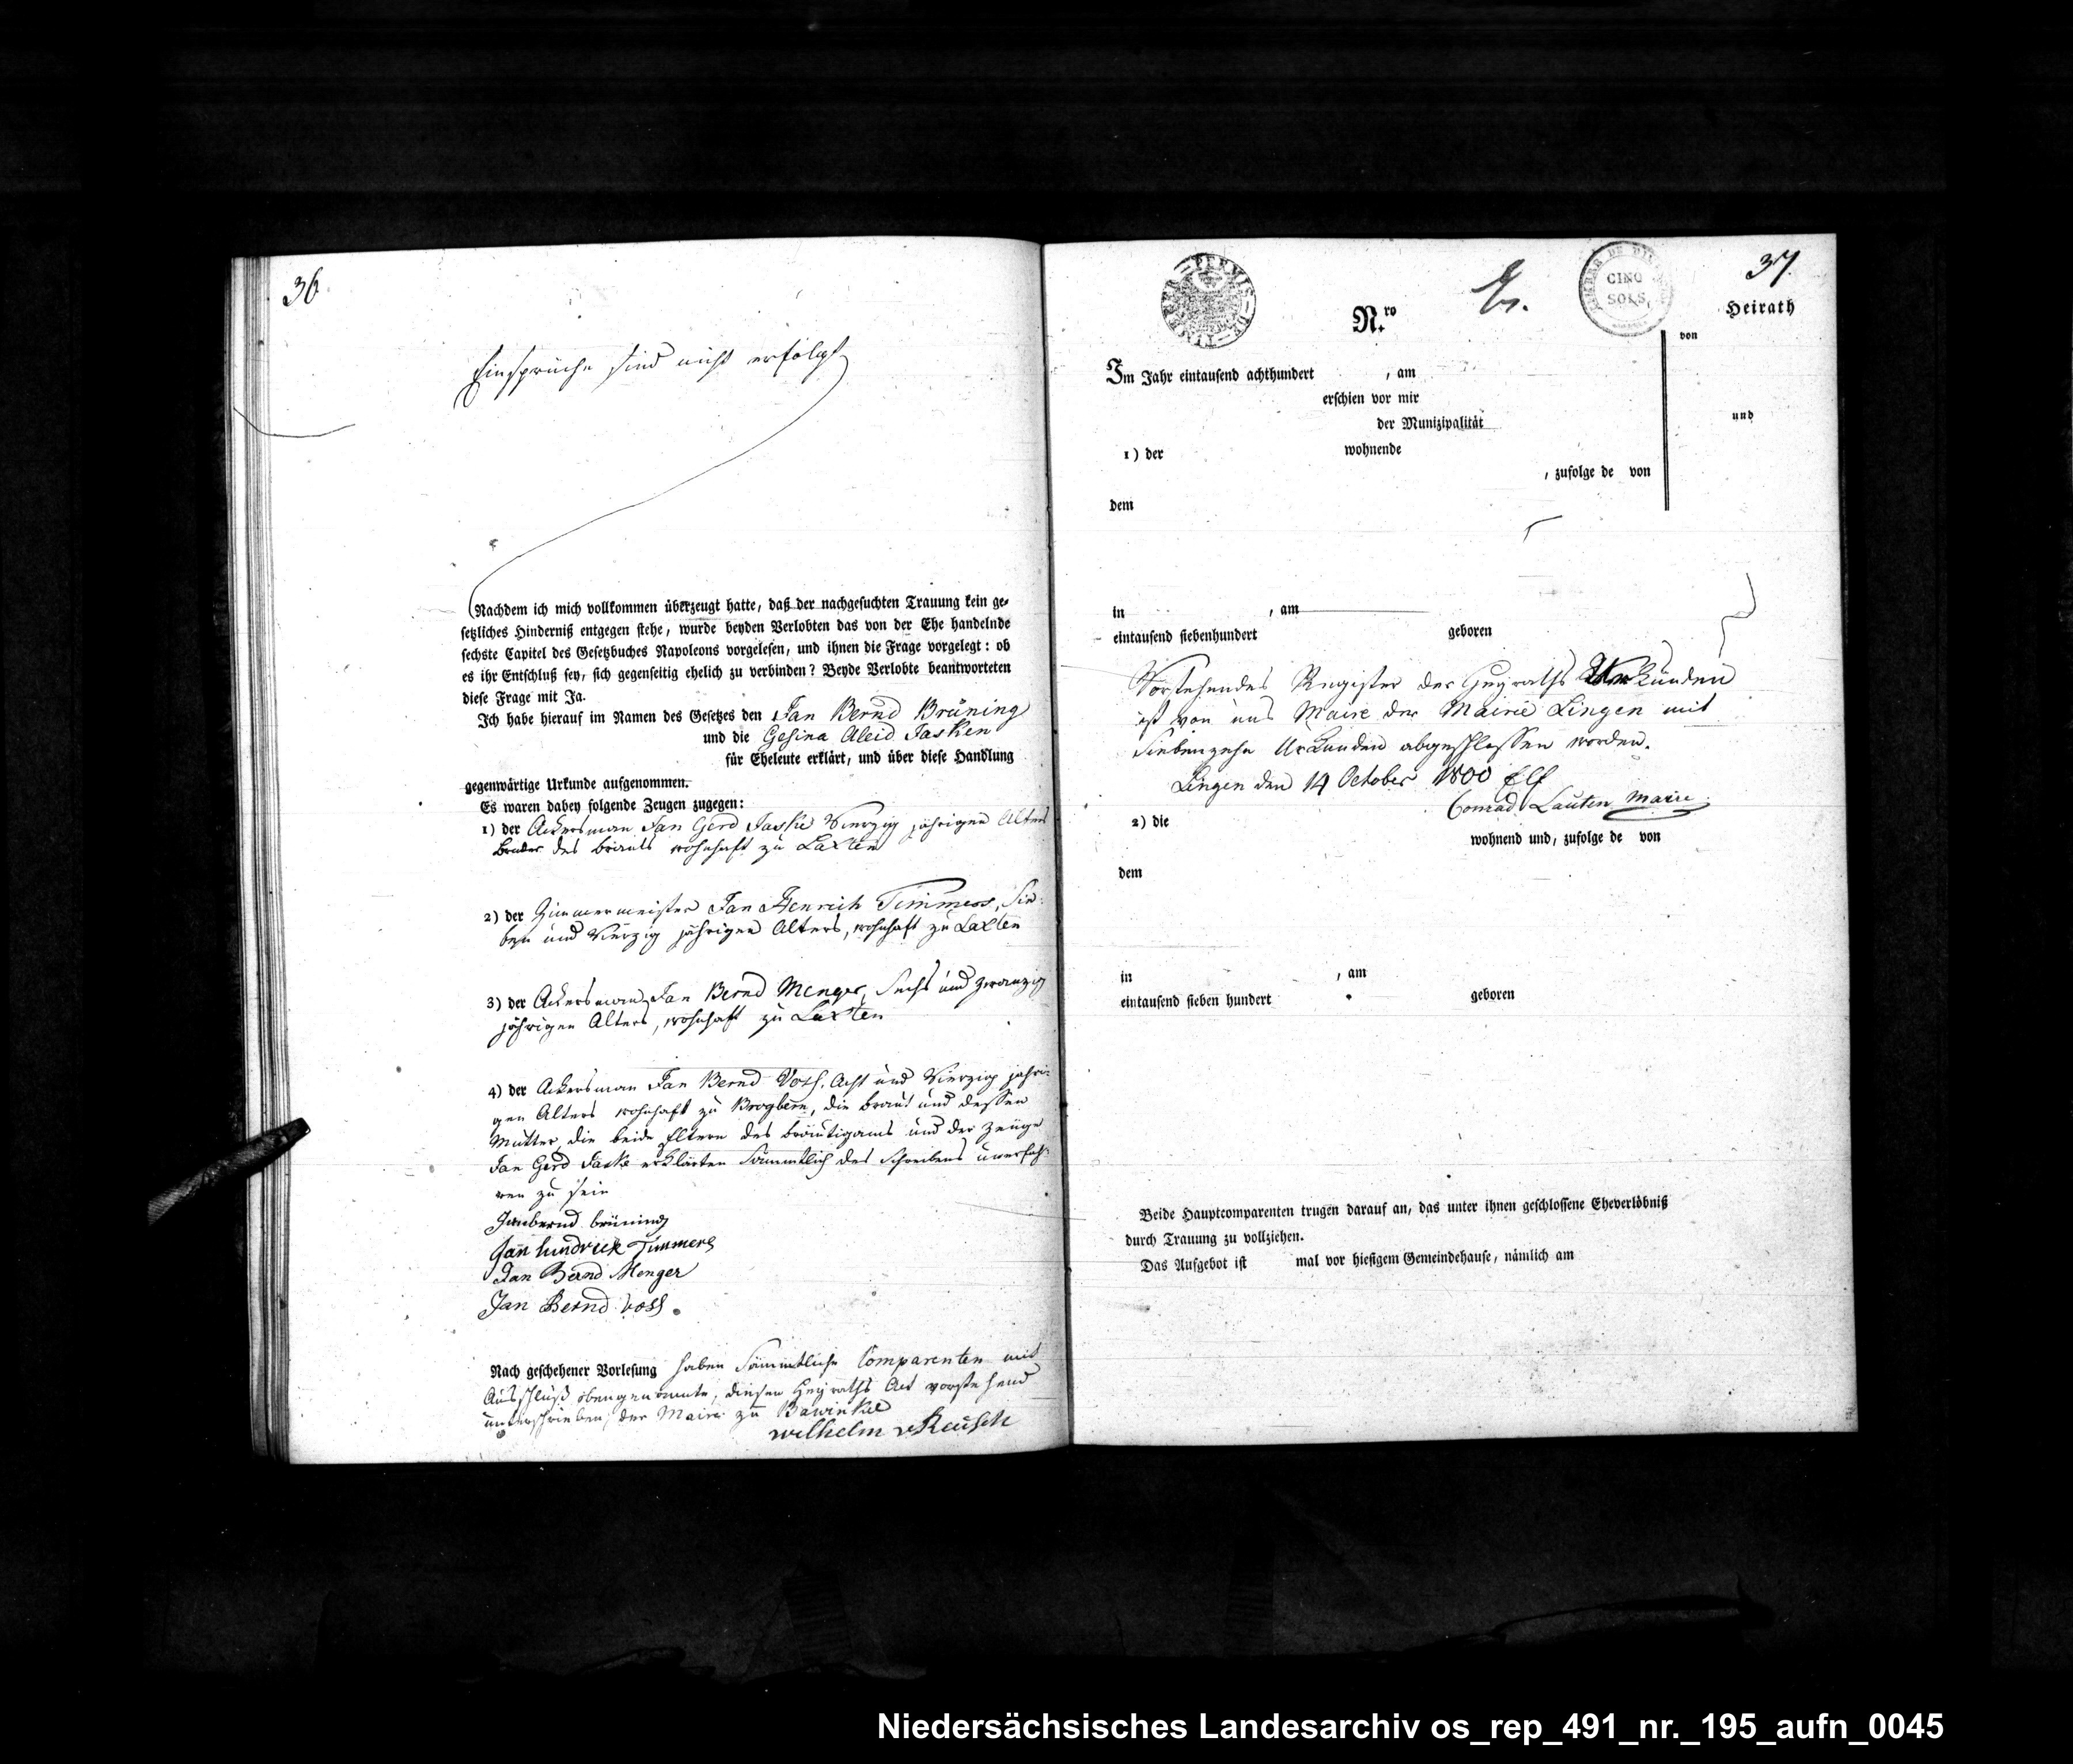 36
Einsprüche sind nicht erfolgt
Nachdem ich mich vollkommen überzeugt hatte, daß der nachgesuchten Trauung kein ge-
setzliches Hinderniß entgegen stehe, wurde beyden Verlobten das von der Ehe handelnde
sechste Capitel des Gesetzbuches Napoleons vorgelesen, und ihnen die Frage vorgelegt: ob
es ihr Entschluß sey, sich gegenseitig ehelich zu verbinden? Beyde Verlobte beantworteten
diese Frage mit Ja.
Ich habe hierauf im Namen des Gesetzes den Jan Bernd Brüning
und die Gesina Aleid Jasken
für Eheleute erklärt, und über diese Handlung
gegenwärtige Urkunde aufgenommen.
Es waren dabey folgende Zeugen zugegen:
1) der Ackersman Jan Gerd Jaske Vierzig jährigen Alters
Bruder des brauts wohnhaft zu Laxten
2) der Zimmermeister Jan Henrich Timmers, Sie-
ben und Vierzig jährigen Alters, wohnhaft zu Laxten
3) der Ackersman Jan Bernd Menger, Sechs und zwanzig
jährigen Alters, wohnhaft zu Laxten
4) der Ackersman Jan Bernd Voss, Acht und Vierzig jähri-
gen Alters wohnhaft zu Brogbern, die braut und dessen
Mutter, die beide Eltern des bräutigams und der Zeuge
Jan Gerd Jaske erklärten Sämmtlich des Schreibens unerfah-
ren zu sein
Janbernd brüning
Jan hindrick Timmers
Jan Bernd Menger
Jan Bernd Voss
Nach geschehener Vorlesung haben Sämmtliche Comparenten mit
Ausschluß obengenannte, diesen Heyraths Act vorstehend
unterschrieben, der Maire zu Bawinkel
wilhelm
37
Heirath
von
und
TIMBRE DE
CINQ
SOLS
N.ro
Im Jahr eintausend achthundert , am
erschien vor mir
der Munizipalität
1) der wohnende
, zufolge de von
dem
in , am
eintausend siebenhundert geboren
Vorstehendes Register der Heyraths Urkunden
ist von uns Maire der Mairie Lingen mit
Siebenzehn Urkunden abgeschlossen worden.
Lingen den 14 October 1800 Elf
Conrad Lauten Maire
2) die
wohnend und, zufolge de von
dem
in , am
eintausend sieben hundert geboren
Beide Hauptcomparenten trugen darauf an, das unter ihnen geschlossene Eheverlöbniß
durch Trauung zu vollziehen.
Das Aufgebot ist mal vor hiesigem Gemeindehause, nämlich am
Niedersächsisches Landesarchiv os_rep_491_nr._195_aufn_0045